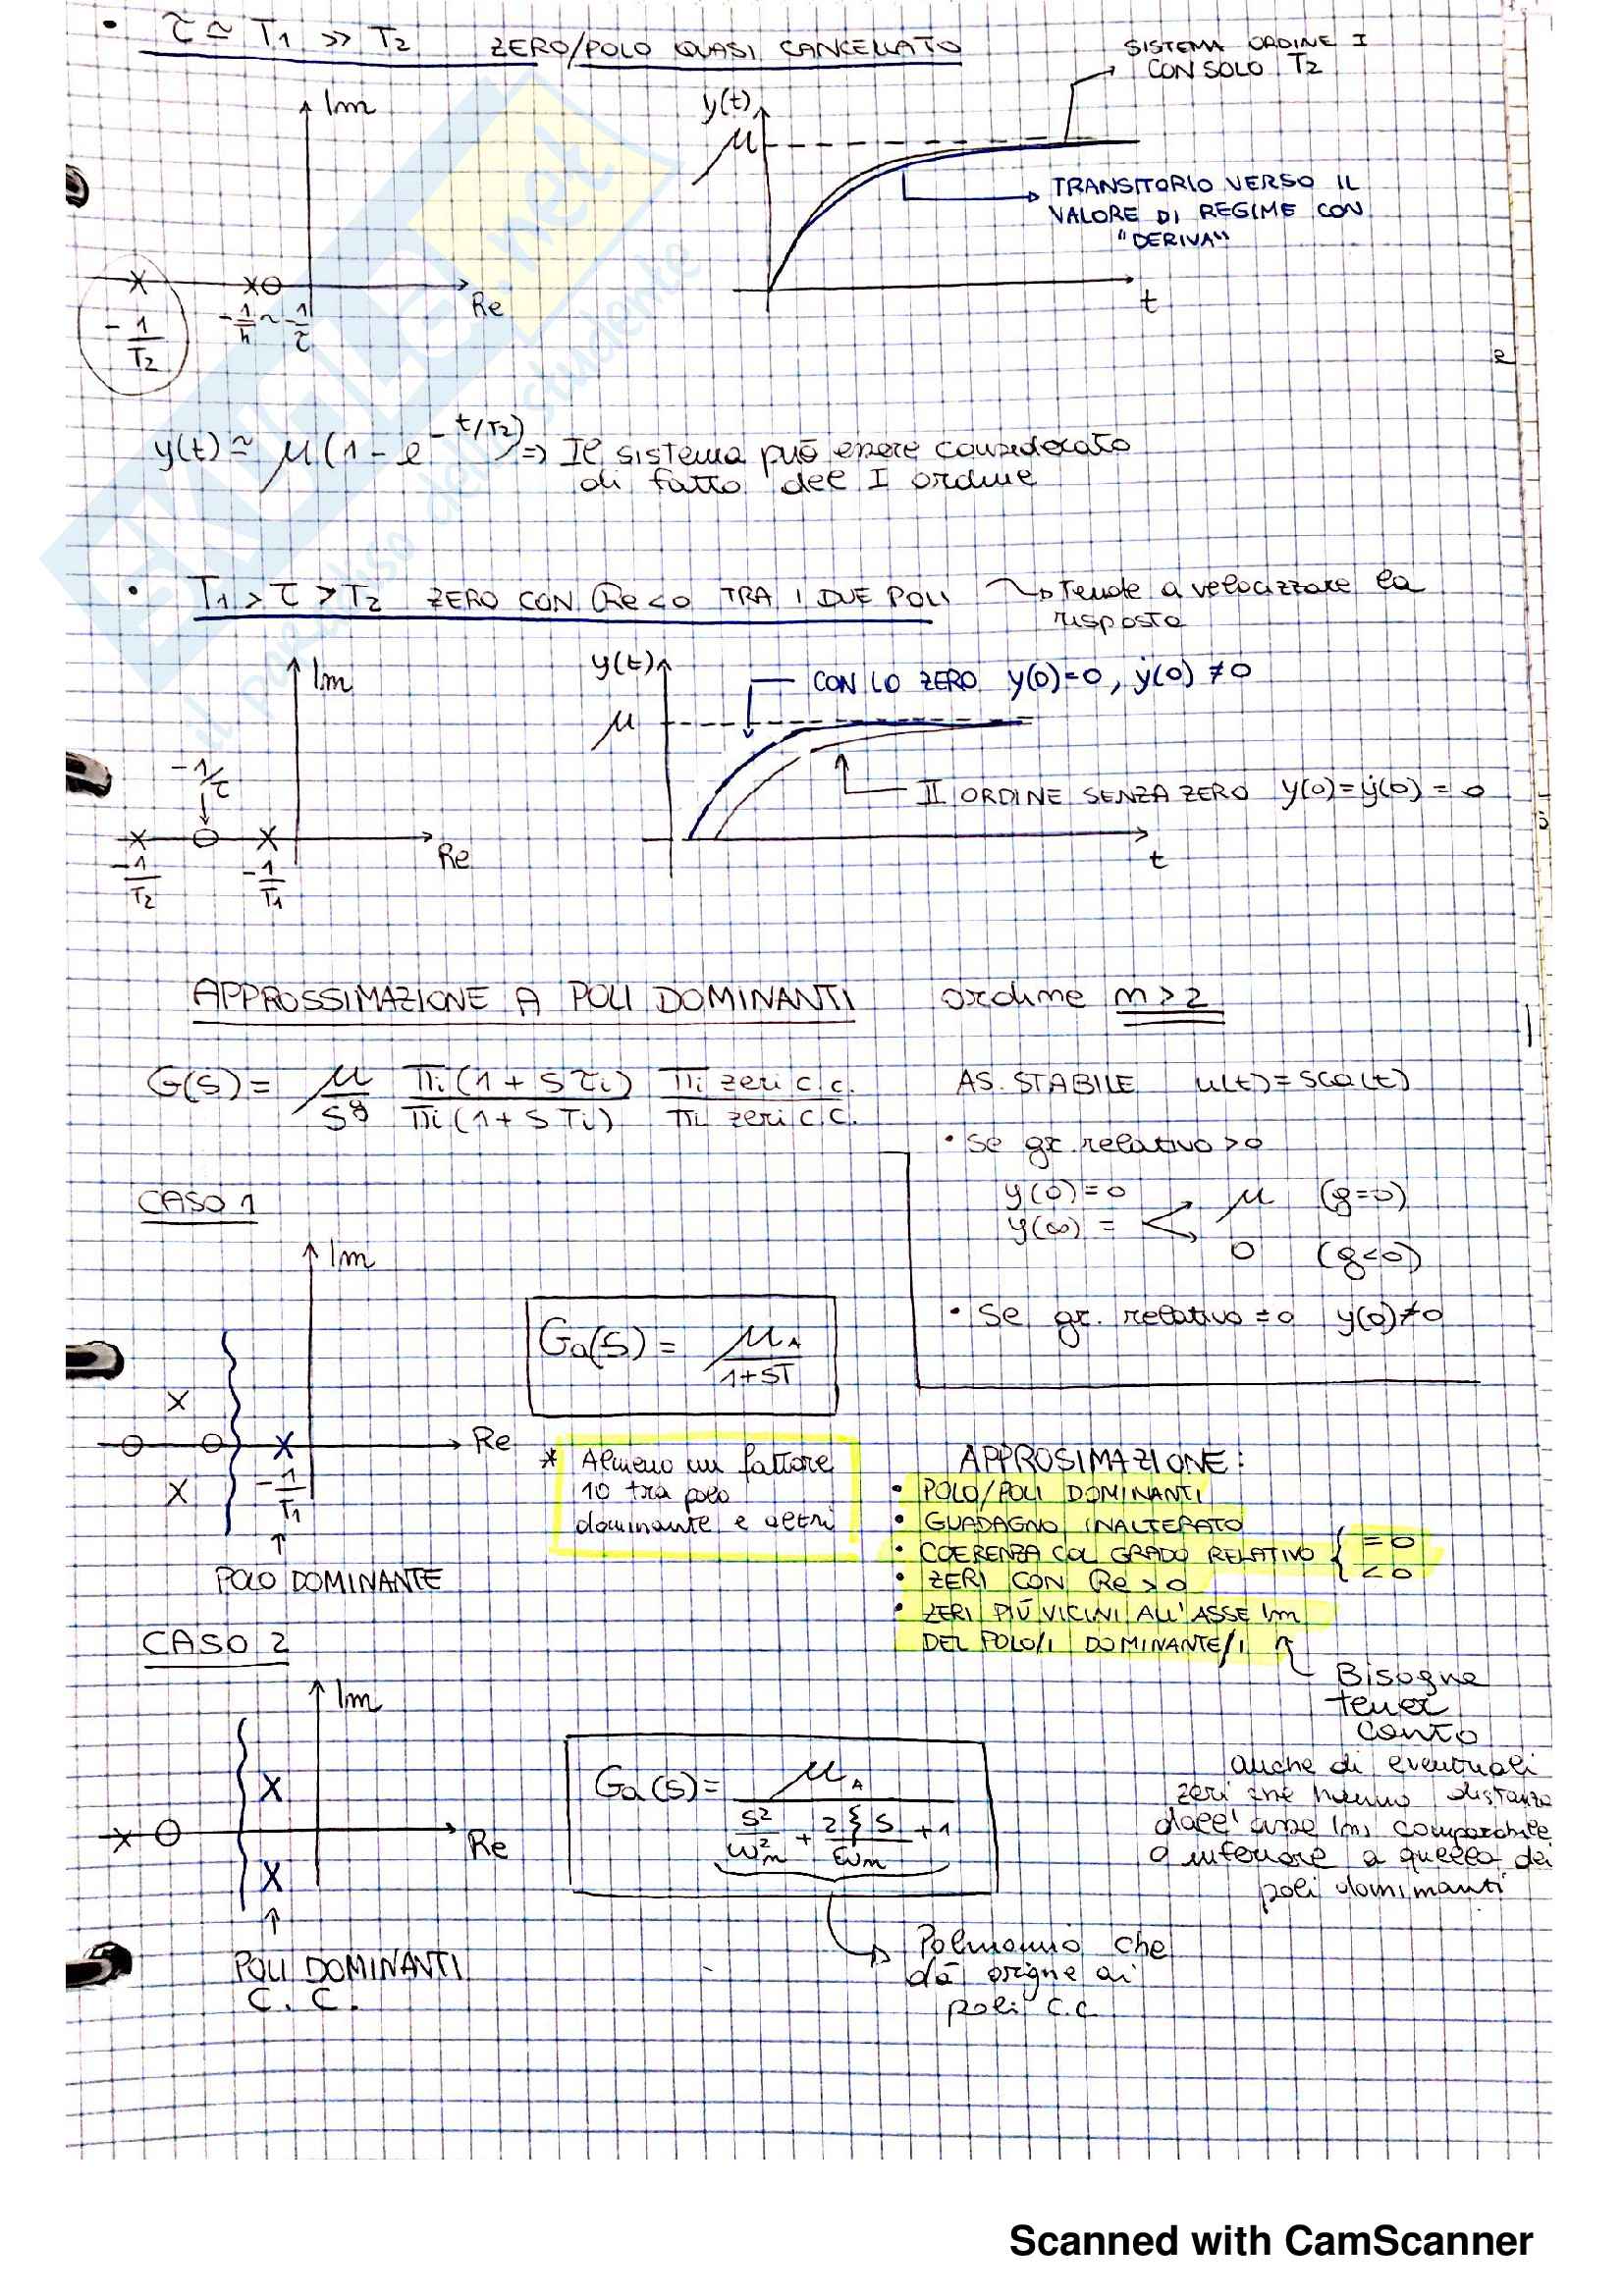 • τ ≃ T1 >> T2 ZERO/POLO QUASI CANCELLATO
SISTEMA ORDINE I
CON SOLO T2
Im
y(t)
μ
TRANSITORIO VERSO IL
VALORE DI REGIME CON
"DERIVA"
Re
t
-1/T2
-1/h ~ -1/τ
y(t) ≃ μ(1 - e^(-t/T2)) => Il sistema può essere considerato
di fatto del I ordine
• T1 > τ > T2 ZERO CON Re<0 TRA I DUE POLI → Tende a velocizzare la
risposta
Im
y(t)
CON LO ZERO y(0)=0, ẏ(0) ≠ 0
μ
-1/τ
II ORDINE SENZA ZERO y(0)=ẏ(0) = 0
Re
t
-1/T2
-1/T1
APPROSSIMAZIONE A POLI DOMINANTI ordine n>2
G(s) = μ/s^g Πi(1+sτi)/Πi(1+sTi) Πi zeri c.c./Πi zeri c.c.
AS. STABILE u(t)=sca(t)
• Se gr. relativo >0
y(0)=0
y(∞) = < μ (g=0)
0 (g<0)
• Se gr. relativo = 0 y(0)≠0
CASO 1
Im
Ga(s) = μA/(1+sT)
Re
-1/T1
POLO DOMINANTE
* Almeno un fattore
10 tra polo
dominante e altri
APPROSIMAZIONE:
• POLO/POLI DOMINANTI
• GUADAGNO INALTERATO
• COERENZA COL GRADO RELATIVO { =0
<0
• ZERI CON Re>0
• ZERI PIÙ VICINI ALL'ASSE Im
DEL POLO/I DOMINANTE/I
Bisogna
tener
conto
anche di eventuali
zeri che hanno distanza
dall'asse Im comparabile
o inferiore a quella dei
poli dominanti
CASO 2
Im
Re
Ga(s) = μA/(s²/ωn² + 2ξs/ωn + 1)
Polinomio che
dà origine ai
poli c.c
POLI DOMINANTI
C.C.
SKUOLA.net
il paradiso dello studente
Scanned with CamScanner